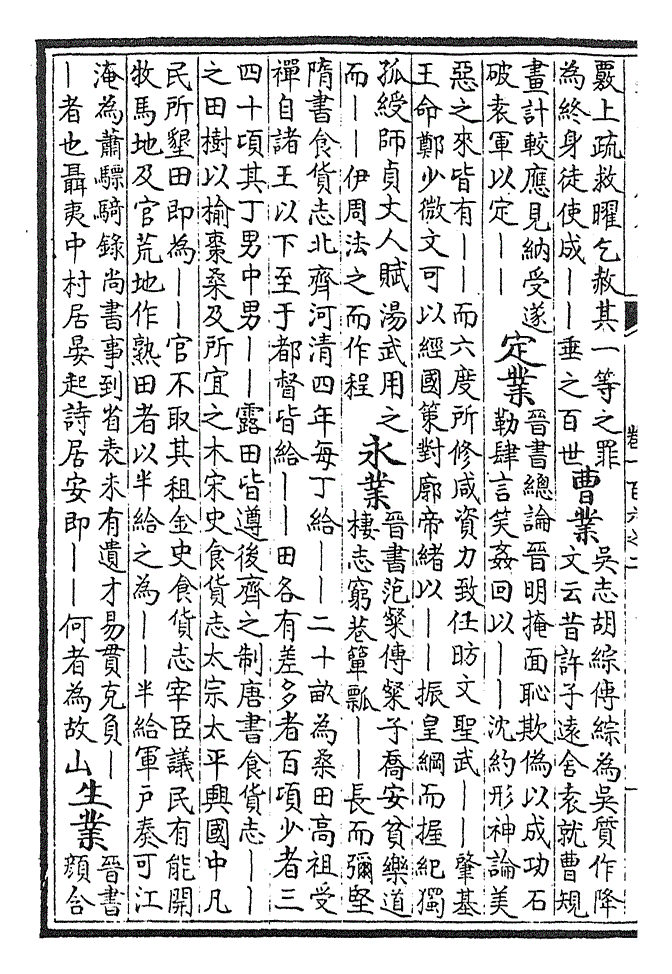 覈上疏救曜乞赦其一等之罪
為終身徒使成——垂之百世
曹業
吳志胡綜傳綜為吳質作降
文云昔許子遠舍袁就曹規
畫計較應見納受遂
破袁軍以定——
定業
晉書總論晉明掩面恥欺偽以成功石
勒肆言笑姦回以——沈約形神論美
惡之來皆有——而六度所修咸資力致任昉文聖武——肇基
王命鄭少微文可以經國策對廓帝緒以——振皇綱而握紀獨
孤綬師貞丈人賦湯武用之
而——伊周法之而作程
永業
晉書范粲傳粲子喬安貧樂道
棲志窮巷簞瓢——長而彌堅
隋書食貨志北齊河清四年每丁給——二十畝為桑田高祖受
禪自諸王以下至于都督皆給——田各有差多者百頃少者三
四十頃其丁男中男——露田皆遵後齊之制唐書食貨志——
之田樹以榆棗桑及所宜之木宋史食貨志太宗太平興國中凡
民所墾田即為——官不取其租金史食貨志宰臣議民有能開
牧馬地及官荒地作熟田者以半給之為——半給軍戶奏可江
淹為蕭驃騎錄尚書事到省表未有遺才易貫克負—
—者也聶夷中村居晏起詩居安即——何者為故山
生業
晉書
顏含